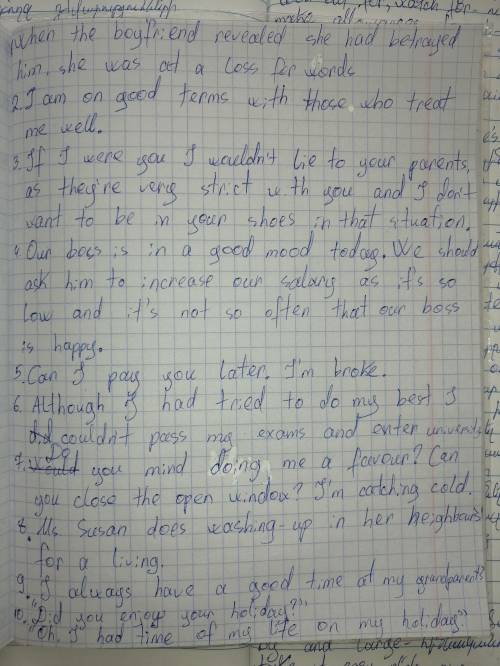 When the boyfriend revealed she had betrayed
him, she was at a loss for words
2. I am on good terms with those who treat
me well.
3. If I were you I wouldn't lie to your parents,
as they're very strict with you and I don't
want to be in your shoes in that situation.
4. Our boss is in a good mood today. We should
ask him to increase our salary as it's so
low and it's not so often that our boss
is happy.
5. Can I pay you later. I'm broke.
6. Although I had tried to do my best I
couldn't pass my exams and enter
7. Do you mind doing me a favour? Can
you close the open window? I'm catching cold.
8. Ms. Susan does washing-up in her neighbours'
for a living.
9. I always have a good time at my grandparents'
10. "Did you enjoy your holiday?"
"Oh, I had time of my life on my holiday"